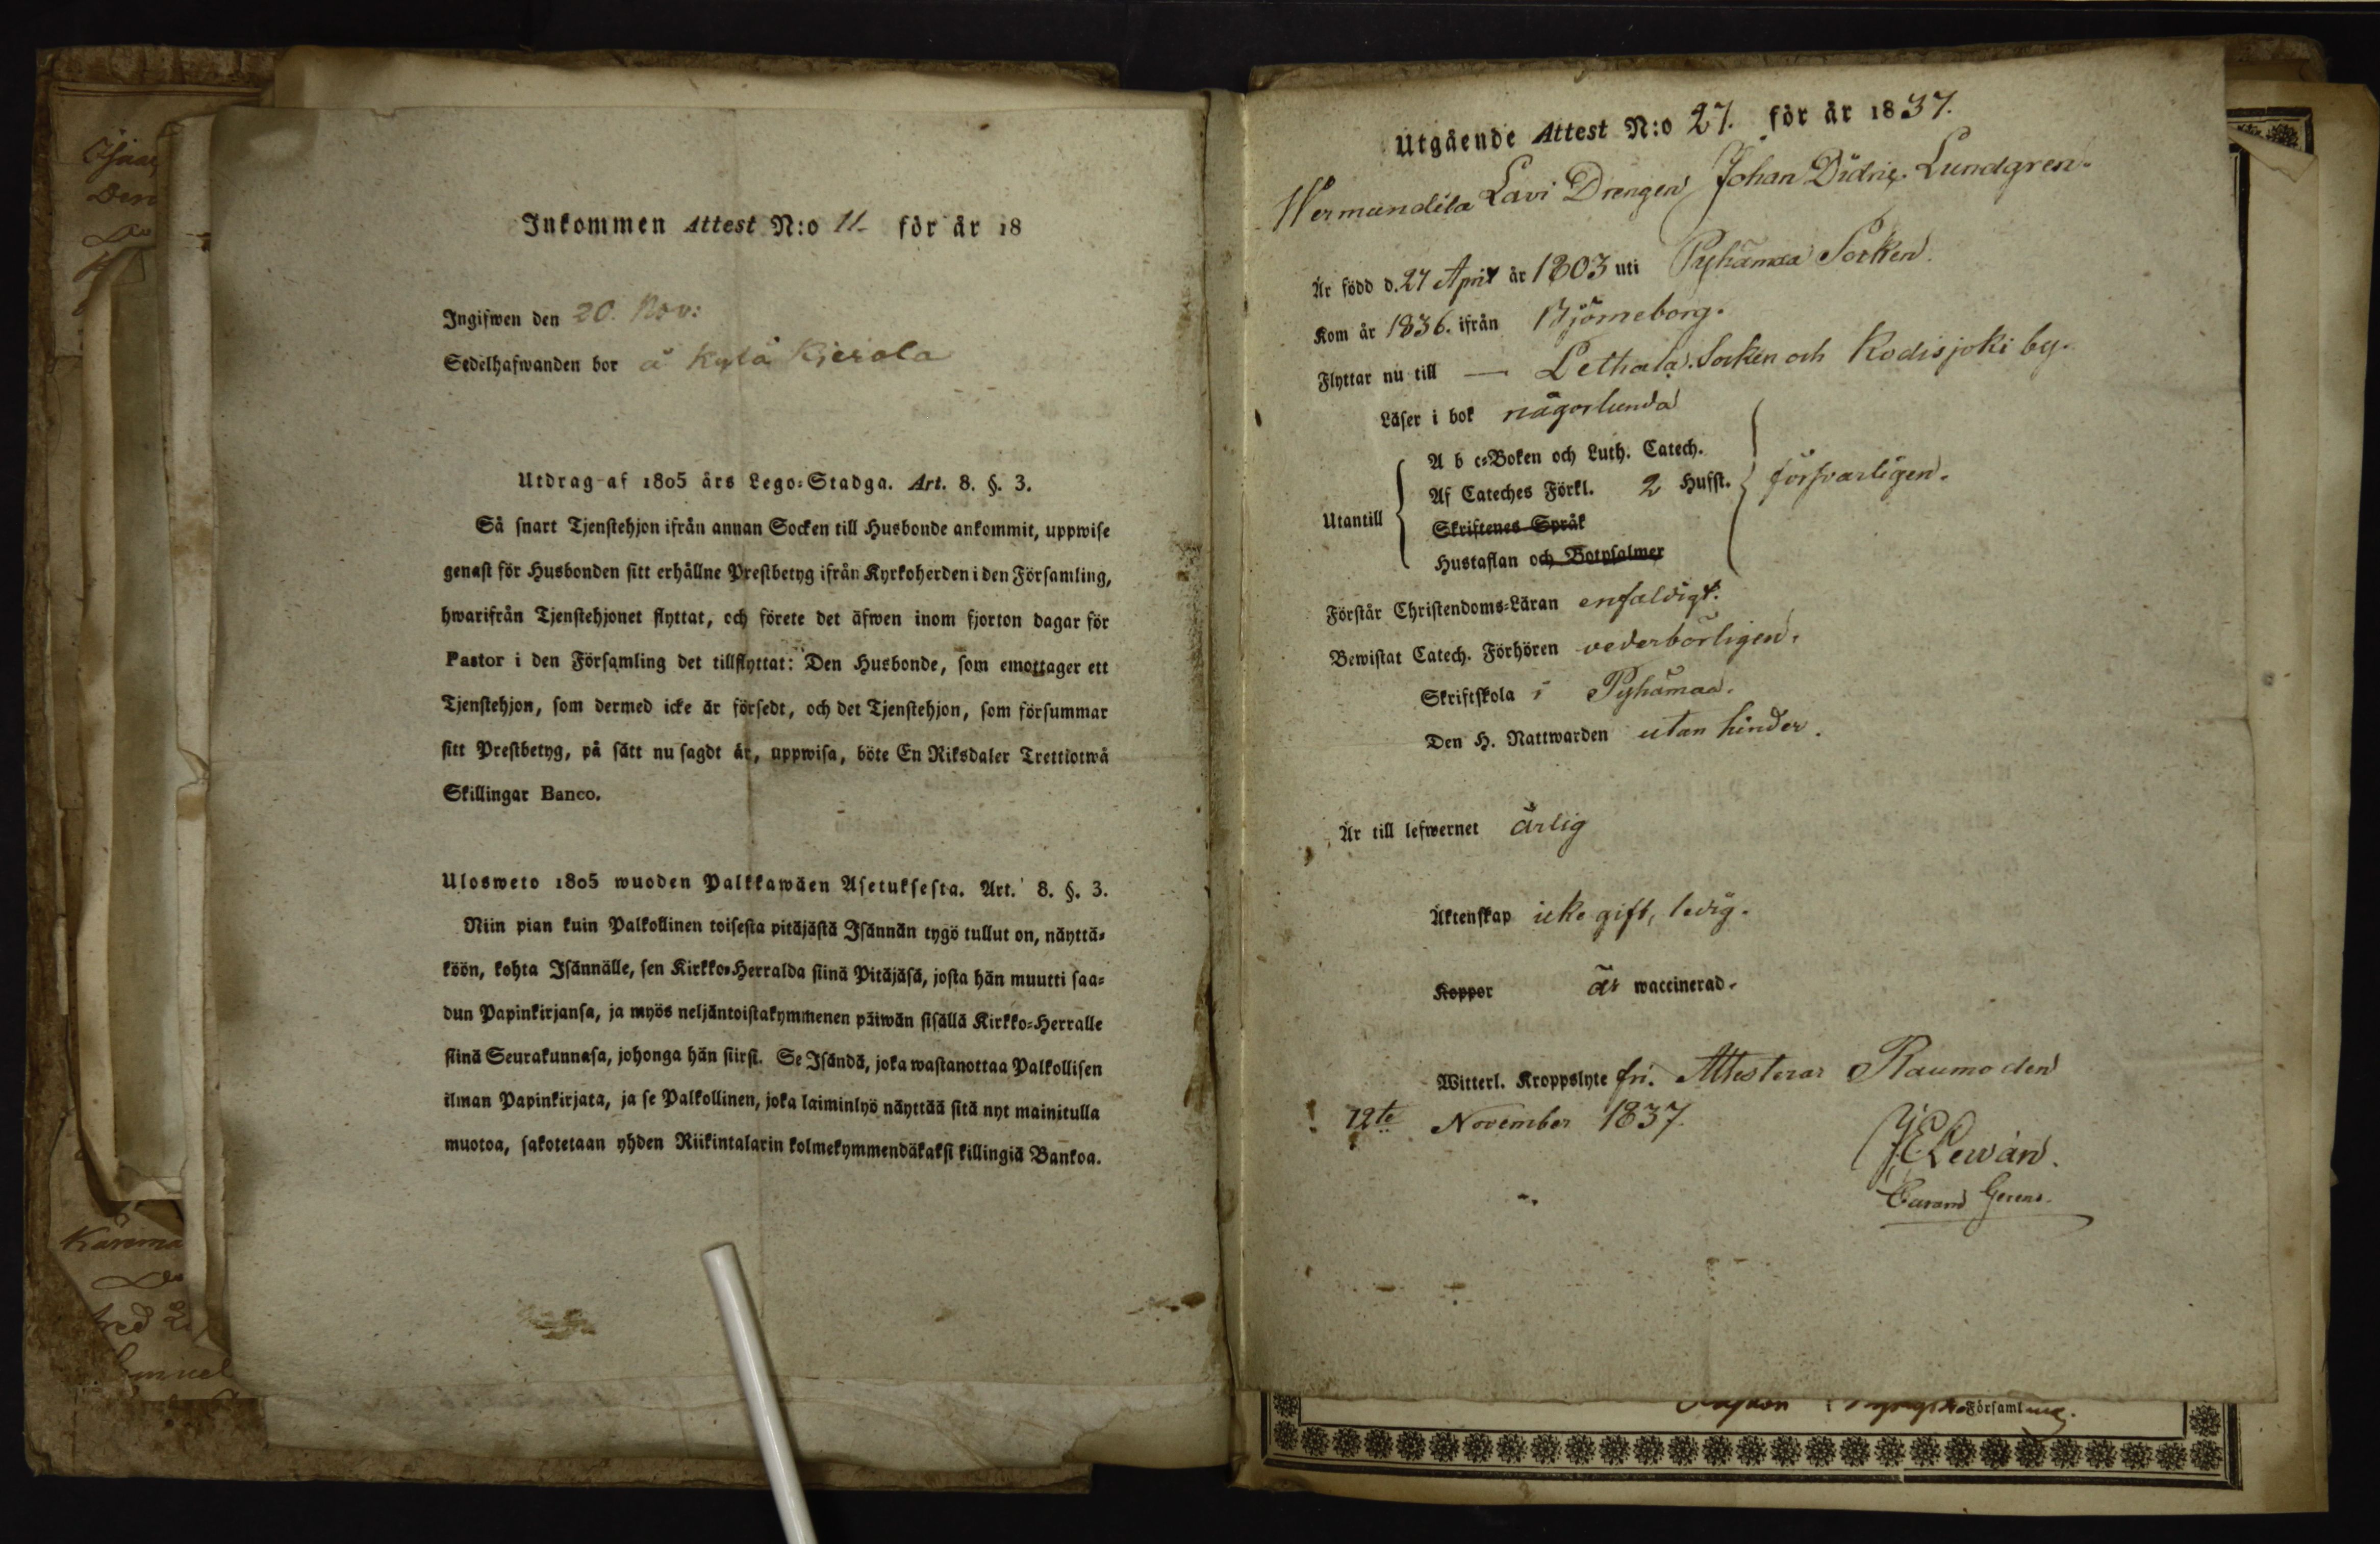 Inkommen Attest N:o 11. för år 18
Ingifwen den 20. Nov:
Sedelhafwanden bor å Kylä Kjerola
Utdrag af 1805 års Lego-Stadga. Art. 8. §. 3.
Så snart Tjenstehjon ifrån annan Socken till Husbonde ankommit, uppwise
genast för Husbonden sitt erhållne Prestbetyg ifrån Kyrkoherden i den Församling,
hwarifrån Tjenstehjonet flyttat, och förete det äfwen inom fjorton dagar för
Pastor i den Församling det tillflyttat: Den Husbonde, som emottager ett
Tjenstehjon, som dermed icke är försedt, och det Tjenstehjon, som försummar
sitt Prestbetyg, på sätt nu sagdt är, uppwisa, böte En Riksdaler Trettiotwå
Skillingar Banco.
Ulosweto 1805 wuoden Palkkawäen Asetuksesta. Art. 8. §. 3.
Niin pian kuin Palkollinen toisesta pitäjästä Isännän tygö tullut on, näyttä-
köön, kohta Isännälle, sen Kirkko-Herralda siinä Pitäjäsä, josta hän muutti saa-
dun Papinkirjansa, ja myös neljäntoistakymmenen päiwän sisällä Kirkko-Herralle
siinä Seurakunnasa, johonga hän siirsi. Se Isändä, joka wastanottaa Palkollisen
ilman Papinkirjata, ja se Palkollinen, joka laiminlyö näyttää sitä nyt mainitulla
muotoa, sakotetaan yhden Riikintalarin kolmekymmendäkaksi killingiä Bankoa.
Utgående Attest N:o 27. för år 1837.
Wermundila Lavi Drengen Johan Didric Lundgren.
Är född d. 27 April år 1803 uti Pyhämaa Socken.
Kom år 1836. ifrån Björneborg.
Flyttar nu till — Lethala Socken och Kodisjoki by.
Läser i bok någorlunda
A b c-Boken och Luth. Catech.
Af Cateches Förkl. 2 Hufst. försvarligen.
Utantill
Skriftenes Språk
Hustaflan och Botpsalmer
Förstår Christendoms-Läran enfaldigt.
Bewistat Catech. Förhören vederbörligen.
Skriftskola i Pyhämaa.
Den H. Nattwarden utan hinder.
Är till lefwernet ärlig
Äktenskap icke gift, ledig.
Koppor är waccinerad.
Witterl. Kroppslyte fri. Attesterar Raumo den
12te November 1837.
J E Lewán.
Curam Gerens.
Församl
Kärema